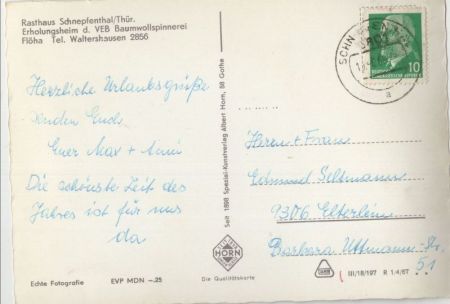 Rasthaus Schnepfenthal/Thür.
Erholungsheim d. VEB Baumwollspinnerei
Flöha Tel. Waltershausen 2856
Herzliche Urlaubsgrüße
senden Euch
Euer Max + Anni
Die schönste Zeit des
Jahres ist für uns
da
Echte Fotografie
EVP MDN -.25
Seit 1898 Spezial-Kunstverlag Albert Horn, 58 Gotha
HORN
Die Qualitätskarte
SCHN
10
a
Herrn + Frau
Edmund Seltmann
9306 Elterlein
Barbara Uttmann-Str.
51
III/18/197 R 1/4/67